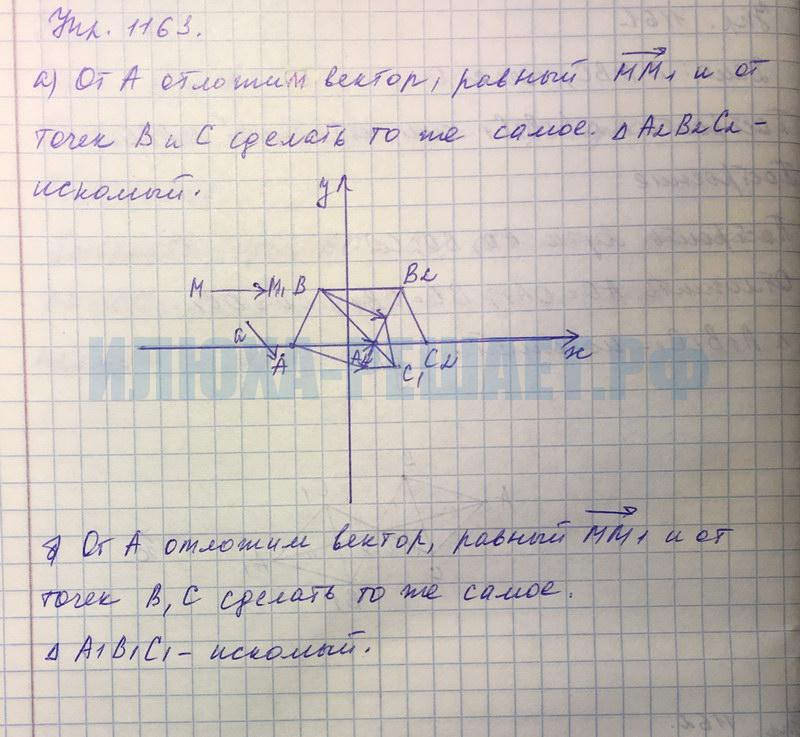 Упр. 1163.
а) От А отложим вектор, равный MM1 и от
точек В и С сделать то же самое. Δ A2B2C2 -
искомый.
y
M M1 B B2
a
A A2 C1 C2 x
ИЛЮХА-РЕШАЕТ.РФ
б) От А отложим вектор, равный MM1 и от
точек В, С сделать то же самое.
Δ A1B1C1 - искомый.